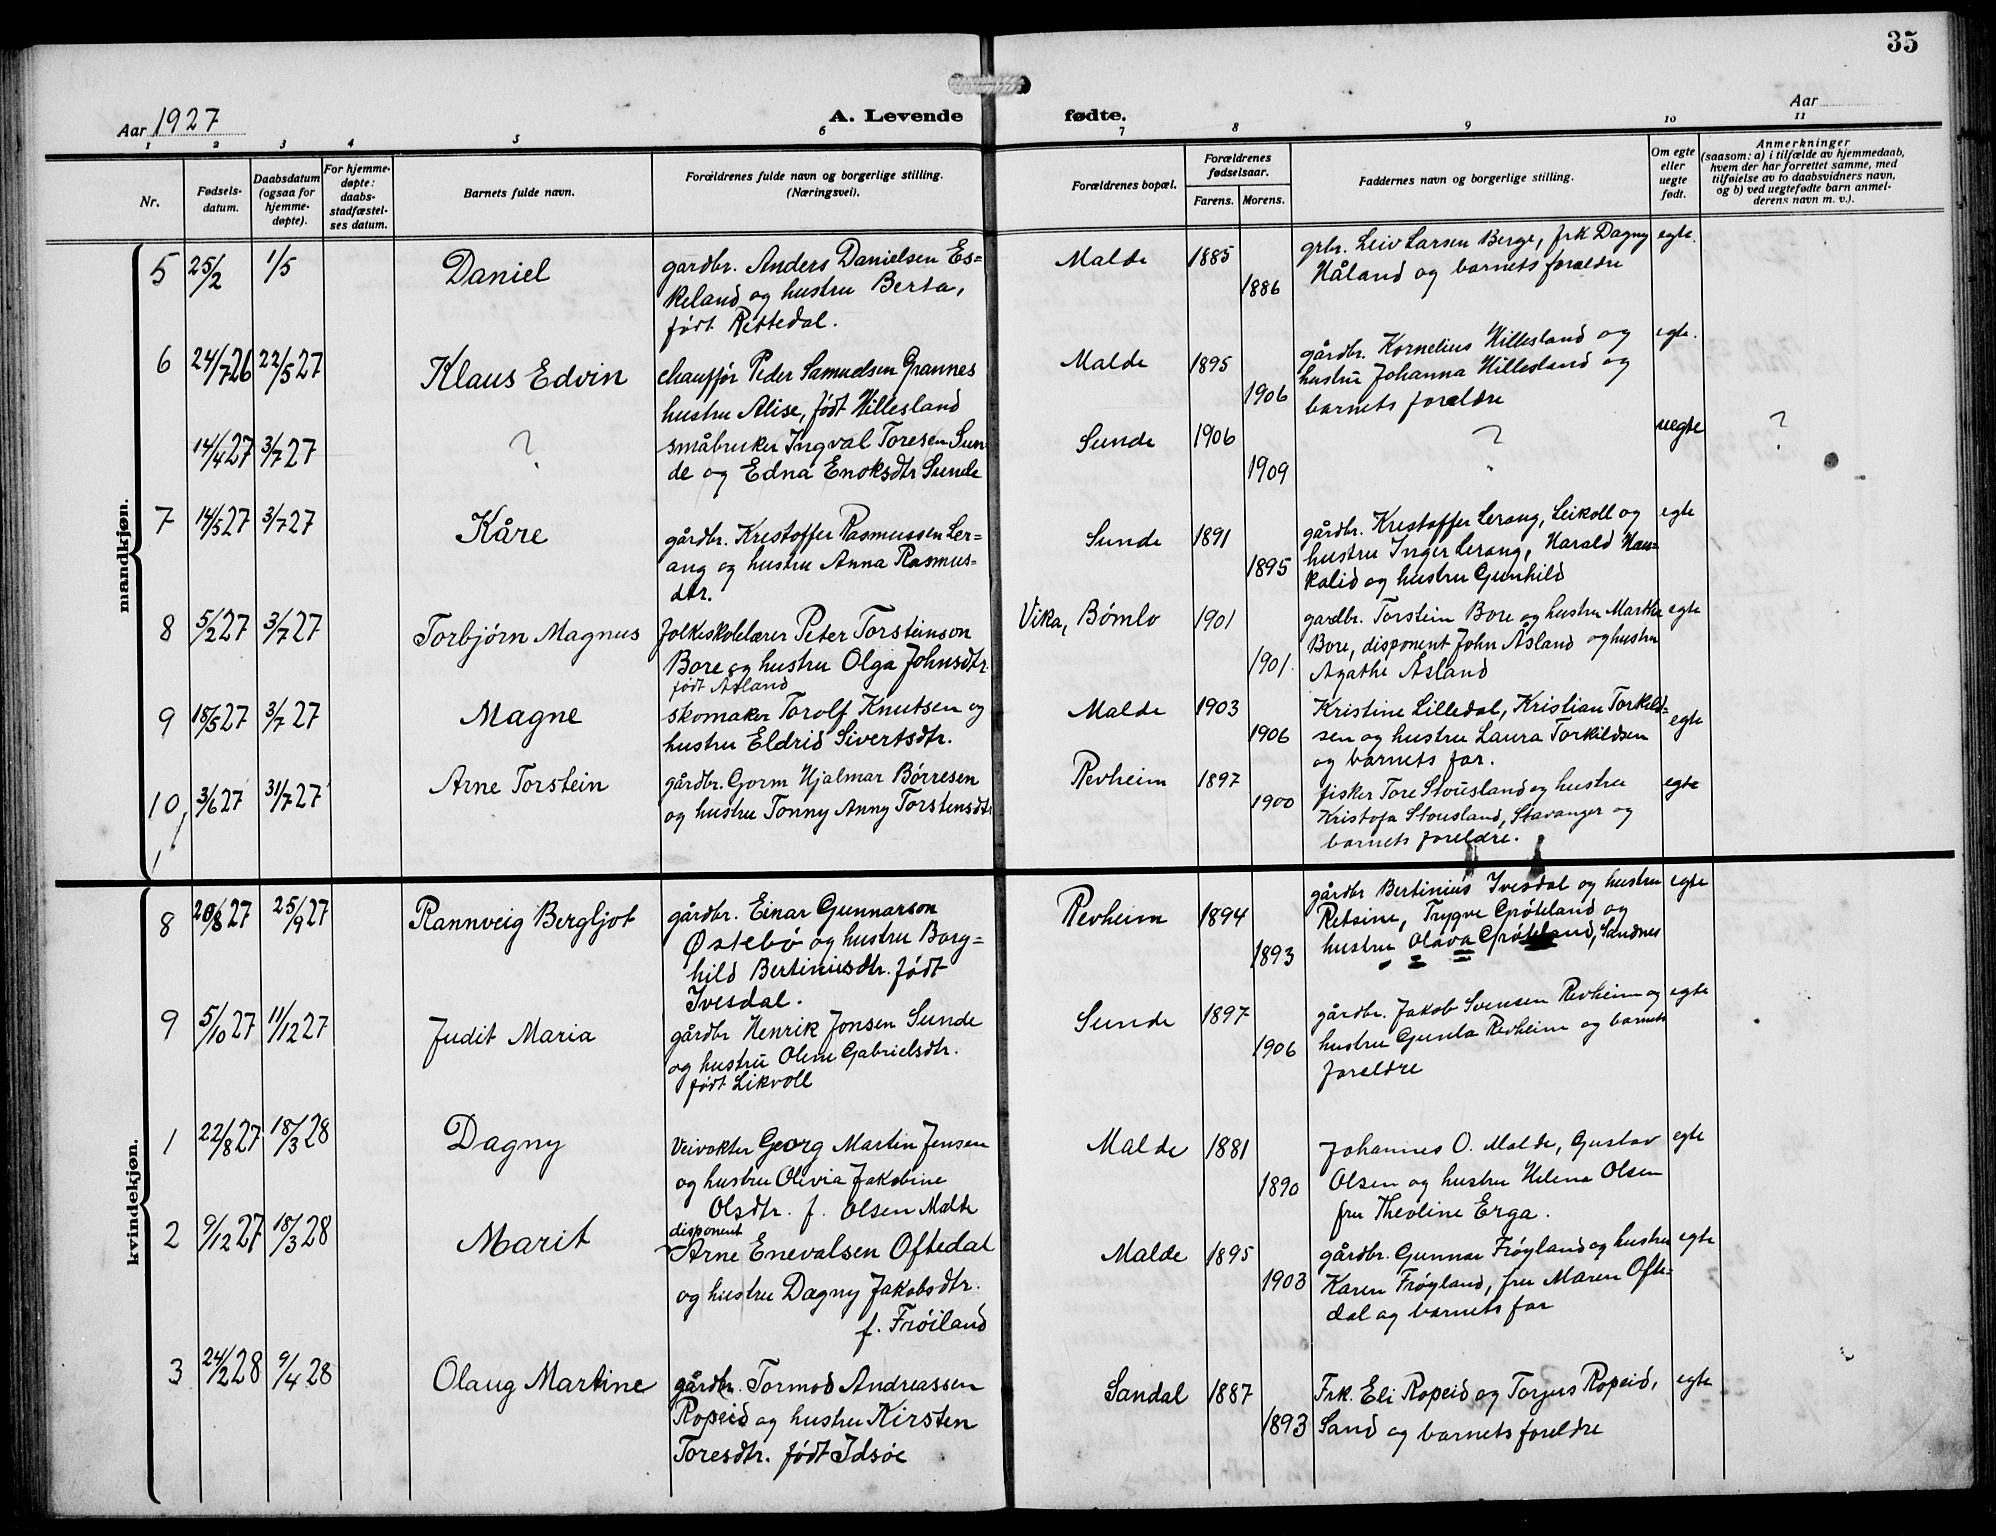 35
Aar 1927 A. Levende fødte. Aar
1 2 3 4 5 6 7 8 9 10 11
Nr.
Fødsels-
datum.
Daabsdatum
(ogsaa for
hjemme-
døpte).
For hjemme-
døpte:
daabs-
stadfæstel-
ses datum.
Barnets fulde navn.
Forældrenes fulde navn og borgerlige stilling.
(Næringsvei).
Forældrenes bopæl.
Forældrenes
fødselsaar.
Farens. Morens.
Faddernes navn og borgerlige stilling.
Om egte
eller
uegte
født.
Anmerkninger
(saasom: a) i tilfælde av hjemmedaab,
hvem der har forrettet samme, med
tilføielse av to daabsvidners navn,
og b) ved uegtefødte barn anmel-
derens navn m. v.).
mandkjøn.
5 25/2 1/5 Daniel gardbr. Anders Danielsen Es= Malde 1885 grbr. Leiv Larsen Berge, frk Dagny egte.
keland og hustru Berta, 1886 Håland og barnets forældre
født Rettedal.
6 24/7 26 22/5 27 Klaus Edvin chauffør Peder Samuelsen Grannes Malde 1895 gårdbr. Kornelius Hillesland og egte.
hustru Alise, født Hillesland 1906 hustru Johanna Hillesland og
barnets forældre
14/4 27 3/7 27 ? småbruker Ingval Toresen Sun- Sunde 1906 ? uegte ?
de og Edna Enoksdtr Sunde 1909
7 14/5 27 3/7 27 Kåre gårdbr. Krestoffer Rasmussen Ler= Sunde 1891 gårdbr. Krestoffer Lerang, Leikoll og egte
ang og hustru Anna Rasmus- 1895 hustru Inger Lerang, Harald Hau=
dtr. kalid og hustru Gunhild
8 5/2 27 3/7 27 Torbjørn Magnus folkeskolelærer Peter Torsteinson Vika, Bömlo 1901 gardbr. Torstein Bore og hustru Martha egte
Bore og hustru Olga Johnsdtr. 1901. Bore, disponent John Åsland og hustru
født Åsland Agathe Åsland
9 18/5 27 3/7 27 Magne skomaker Torolf Knutsen og Malde 1903 Kristine Lilledal, Kristian Torkild= egte
hustru Eldrid Sivertsdtr. 1906 sen og hustru Laura Torkildsen
og barnets far.
10 3/6 27 31/7 27 Arne Torstein gårdbr. Gorm Hjalmar Börresen Revheim 1897 fisker Tore Stousland og hustru egte
og hustru Tonny Anny Torstensdtr 1900 Kristofa Stousland, Stavanger og
barnets foreldre.
kvindekjøn.
8 20/8 27 25/9 27 Rannveig Bergljot gårdbr. Einar Gunnarson Revheim 1894 gårdbr Bertinius Ivesdal og hustru egte
Østebö og hustru Borg= 1893 Retsine, Trygve Gröteland og
hild Bertiniusdtr. født hustru Olava Gröteland, Sandnes
Ivesdal.
9 5/10 27 11/12 27 Judit Maria gårdbr Henrik Jonsen Sunde Sunde 1897 gårdbr. Jakob Svensen Revheim og egte
og hustru Olene Gabrielsdtr. 1906 hustru Gunla Revheim og barnets
født Likvoll foreldre
1 22/8 27 18/3 28 Dagny Veivokter Georg Martin Jensen Malde 1881 Johannes O. Malde, Gustav egte
og hustru Olivia Jakobine 1890 Olsen og hustru Helena Olsen
Olsdtr. f. Olsen Malde fru Theoline Erga.
2 9/12 27 18/3 28 Marit disponent
Arne Enevalsen Oftedal Malde 1895 gårdbr. Gunnar Fröyland og hustru egte
og hustru Dagny Jakobsdtr. 1903 Karen Fröyland, fru Maren Ofte-
f. Fröiland dal og barnets far
3 24/2 28 9/4 28 Olaug Martine gårdbr. Tormod Andreassen Sandal 1887 Frk. Eli Ropeid og Torjus Ropeid, egte
Ropeid og hustru Kirsten 1893 Sand og barnets foreldre
Toresdtr. født Idsöe